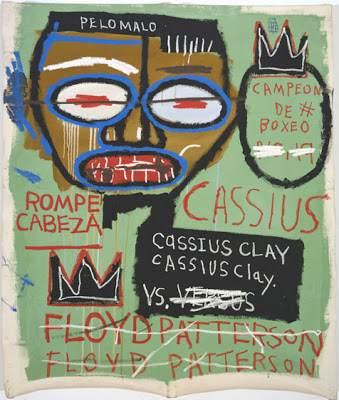 PELOMALO
CAMPEON
DE #
BOXEO
ROMPE
CABEZA
CASSIUS
CASSIUS CLAY
CASSIUS Clay.
VS. VERSUS
FLOYD PATTERSON
FLOYD PATTERSON